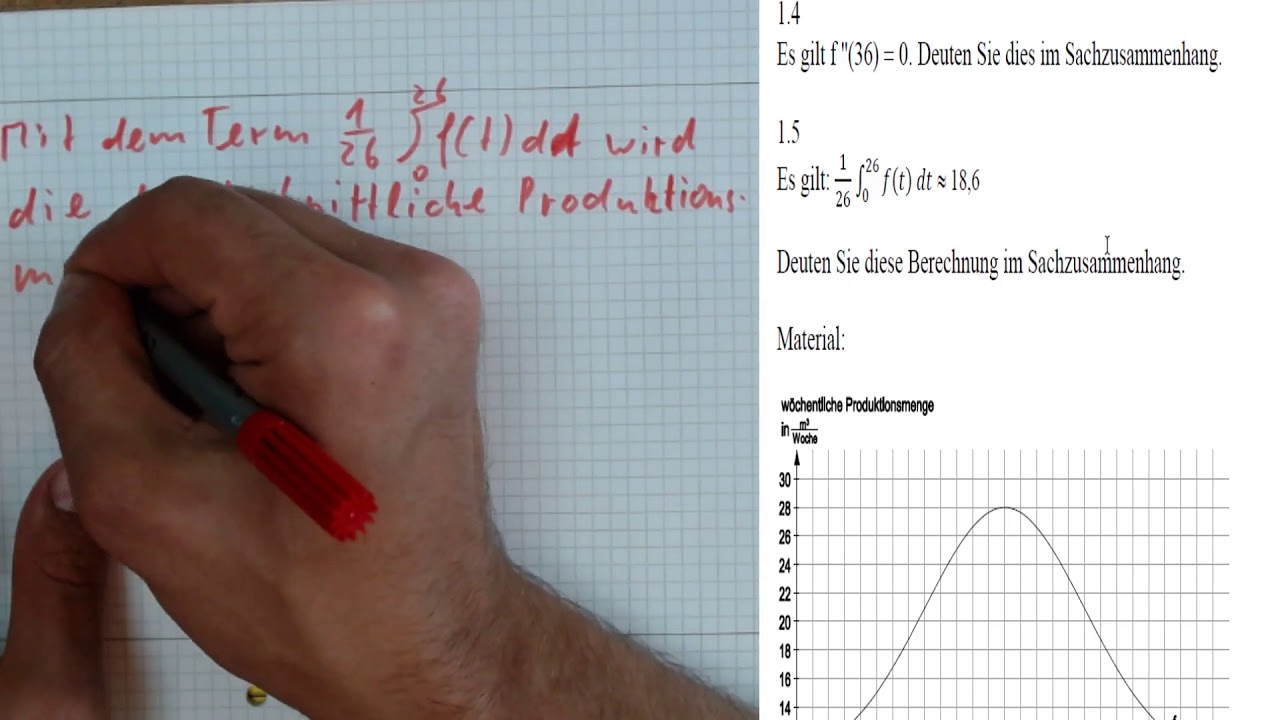 Mit dem Term 1/26 ∫₀²⁶ f(t) dt wird
die
Produktions-
1.4
Es gilt f "(36) = 0. Deuten Sie dies im Sachzusammenhang.
1.5
Es gilt: 1/26 ∫₀²⁶ f(t) dt ≈ 18,6
Deuten Sie diese Berechnung im Sachzusammenhang.
Material:
wöchentliche Produktionsmenge
in m³/Woche
30
28
26
24
22
20
18
16
14
f